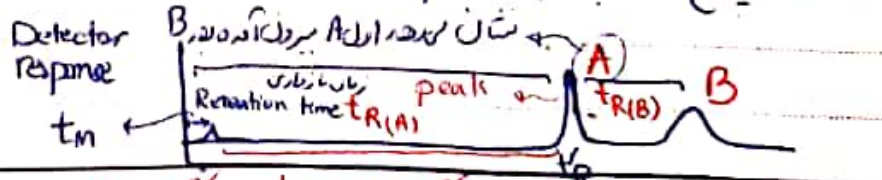 Detector Response
B نشان میدهد اول A بیرون آمده بعد
A
زمان بازداری
Retention time tR(A)
peak
tR(B)
B
tM